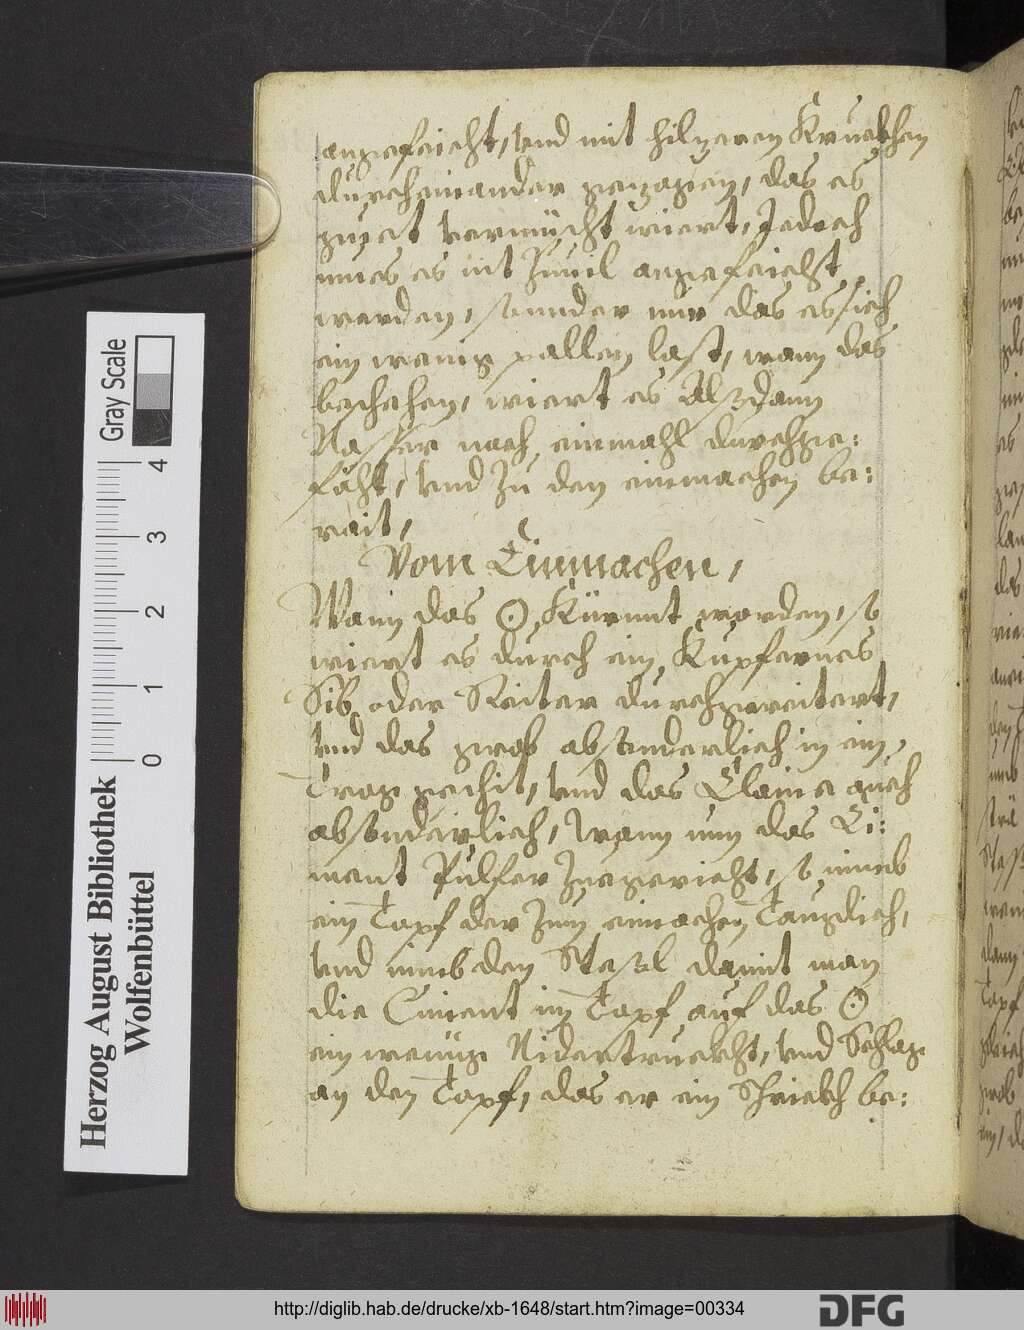 angefeicht, vnd mit hilzeren Kruckhen
durcheinander gezogen, das es
guet vermischt wiert, Jedoch
mues es nit Zuuil angefeicht
werden, sonnder nur das es sich
ein wenig pallen last, wann das
beschehen, wiert es Alsdann
Nasser noch einmahl durchge:
fäht, vnd Zu den einmachen be:
rait,
Vom Einmachen,
Wann das ☉ Kürnnt worden, so
wiert es durch ein Kupfernes
Sib oder Reiter durchgereitert,
vnd das grob absonderlich in ein
Trog gethit, vnd das Claine auch
absonderlich, Wann nun das Ci:
ment Pulfer Zuegericht, so nimb
ein Topf der Zum eimachen Tauglich,
vnd nimb den Stesl damit man
die Ciment im Topf auf das ☉
ein wenig Nidertruckht, vnd Schlag
an den Topf, das er ein Schrickh be:
Herzog August Bibliothek
Wolfenbüttel
Gray Scale
0 1 2 3 4
http://diglib.hab.de/drucke/xb-1648/start.htm?image=00334
DFG